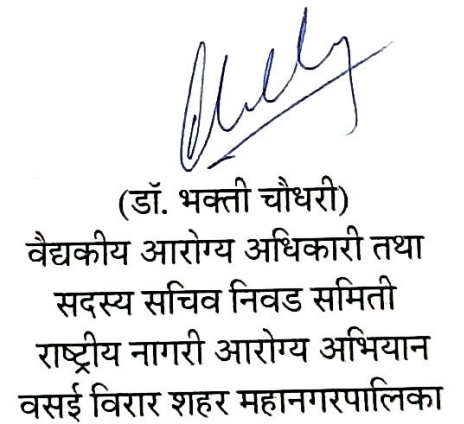 (डॉ. भक्ती चौधरी)
वैद्यकीय आरोग्य अधिकारी तथा
सदस्य सचिव निवड समिती
राष्ट्रीय नागरी आरोग्य अभियान
वसई विरार शहर महानगरपालिका